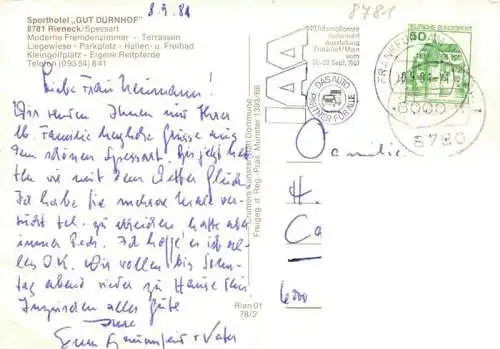 Sporthotel „GUT DÜRNHOF"
8781 Rieneck/Spessart
Moderne Fremdenzimmer - Terrassen
Liegewiese - Parkplatz - Hallen- u. Freibad
Kleingolfplatz - Eigene Reitpferde
Telefon (09354) 641
8.9.81
Liebe Frau Neumann!
Wir senden Ihnen und Ihrer
lb. Familie herzliche Grüsse aus
dem schönen Spessart. Bis jetzt hat-
ten wir mit dem Wetter Glück
Ich habe Sie mehrere Male ver-
sucht tel. zu erreichen, hatte aber
immer Pech. Ich hoffe es ist al-
les O.K. Wir wollen bis Sonn-
tag abend wieder zu Hause sein
Inzwischen alles Gute
Ihre
u. Vater
Krumers Kunstanstalt Dortmund
Freigeg. d. Reg.-Präs. Münster 1393/68
Rien 01
78/2
8781
IAA
Internationale
Automobil
Ausstellung
Frankfurt/Main
vom
DAS AUTO
PARTNER FÜR ALLE
DEUTSCHE BUNDESPOST
50
FRANKFURT
6000
8780
Familie
H.
Ca
6000